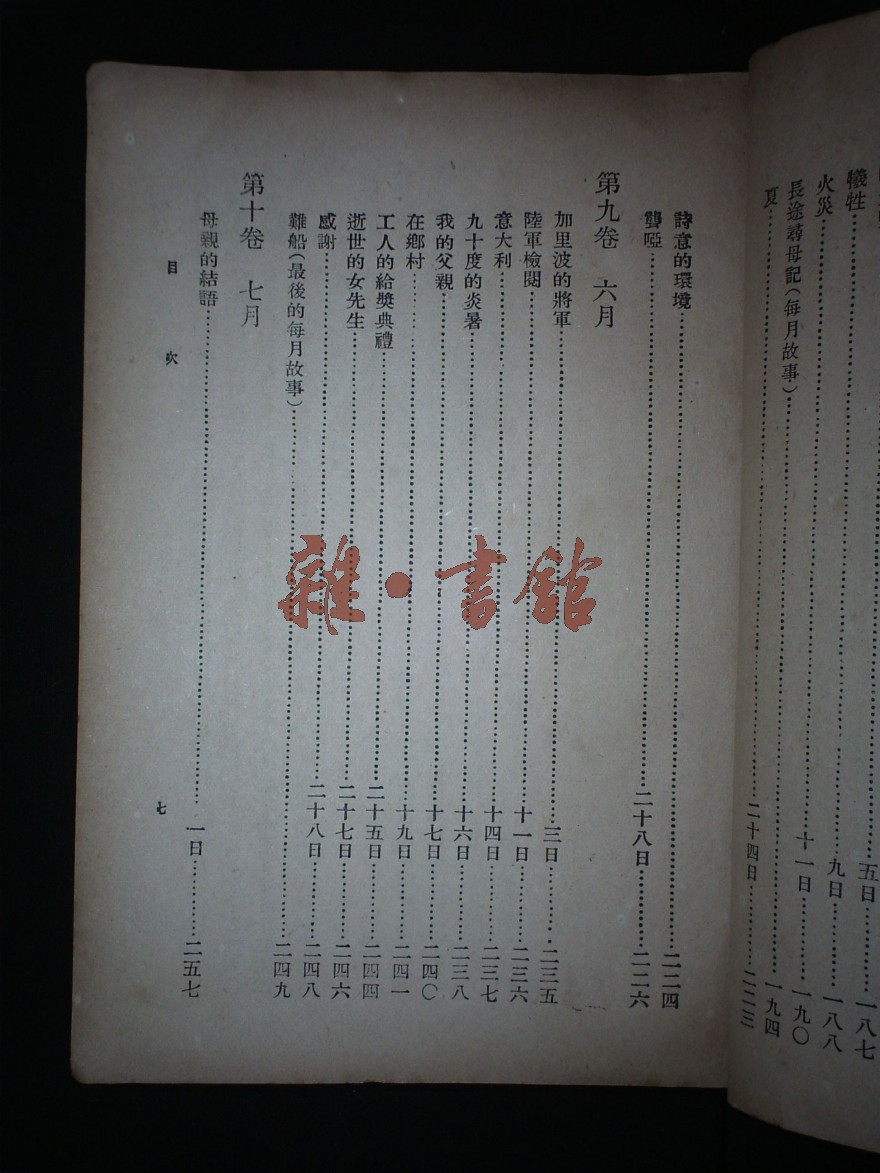 五日……一八七
犧牲……九日……一八八
火災……十一日……一九〇
長途尋母記(每月故事)……一九四
夏……二十四日……二二三
詩意的環境……二二四
聾啞……二十八日……二二六
第九卷 六月
加里波的將軍……三日……二三五
陸軍檢閱……十一日……二三六
意大利……十四日……二三七
九十度的炎暑……十六日……二三八
我的父親……十七日……二四〇
在鄉村……十九日……二四一
工人的給獎典禮……二十五日……二四四
逝世的女先生……二十七日……二四六
感謝……二十八日……二四八
難船(最後的每月故事)……二四九
第十卷 七月
母親的結語……一日……二五七
目次
七
雜·書館